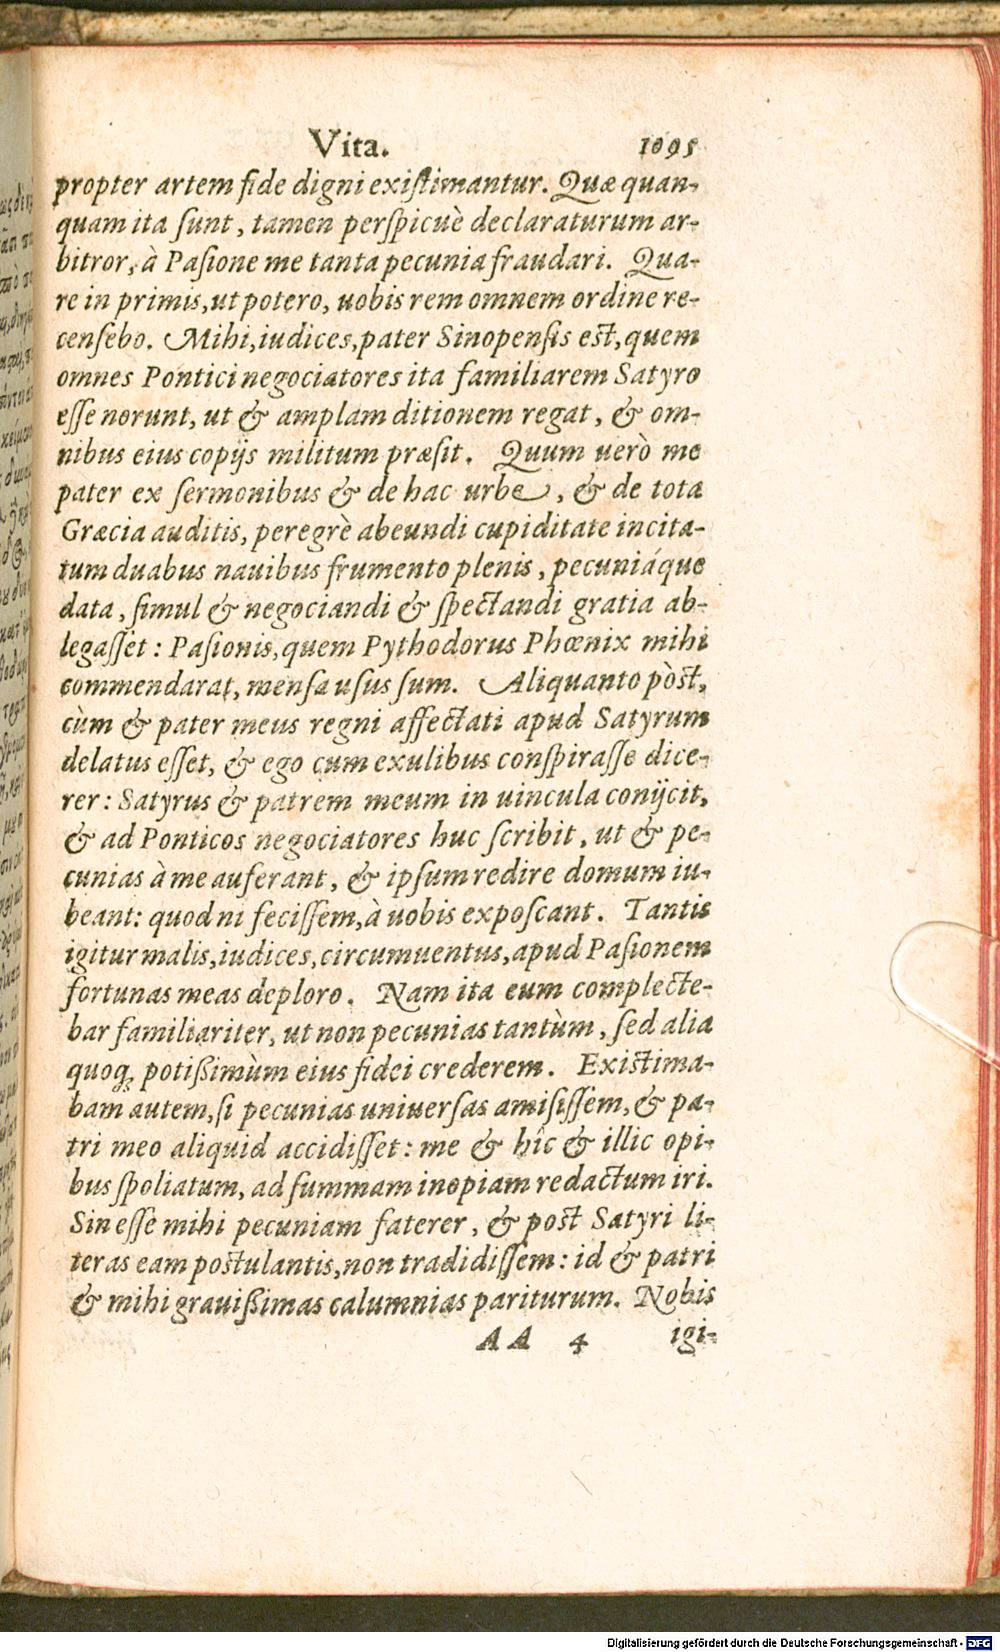 Vita. 1095
propter artem fide digni existimantur. Quæ quan-
quam ita sunt, tamen perspicuè declaraturum ar-
bitror, à Pasione me tanta pecunia fraudari. Qua-
re in primis, ut potero, uobis rem omnem ordine re-
censebo. Mihi, iudices, pater Sinopensis est, quem
omnes Pontici negociatores ita familiarem Satyro
esse norunt, ut & amplam ditionem regat, & om-
nibus eius copijs militum præsit. Quum uerò me
pater ex sermonibus & de hac urbe, & de tota
Græcia auditis, peregrè abeundi cupiditate incita-
tum duabus nauibus frumento plenis, pecuniáque
data, simul & negociandi & spectandi gratia ab-
legasset: Pasionis, quem Pythodorus Phœnix mihi
commendarat, mensa usus sum. Aliquanto pòst,
cùm & pater meus regni affectati apud Satyrum
delatus esset, & ego cum exulibus conspirasse dice-
rer: Satyrus & patrem meum in uincula conijcit,
& ad Ponticos negociatores huc scribit, ut & pe-
cunias à me auferant, & ipsum redire domum iu-
beant: quod ni fecissem, à uobis exposcant. Tantis
igitur malis, iudices, circumuentus, apud Pasionem
fortunas meas deploro. Nam ita eum complecte-
bar familiariter, ut non pecunias tantùm, sed alia
quoq; potißimùm eius fidei crederem. Existima-
bam autem, si pecunias uniuersas amisissem, & pa-
tri meo aliquid accidisset: me & hîc & illic opi-
bus spoliatum, ad summam inopiam redactum iri.
Sin esse mihi pecuniam faterer, & post Satyri li-
teras eam postulantis, non tradidissem: id & patri
& mihi grauißimas calumnias pariturum. Nobis
AA 4 igi-
Digitalisierung gefördert durch die Deutsche Forschungsgemeinschaft - DFG